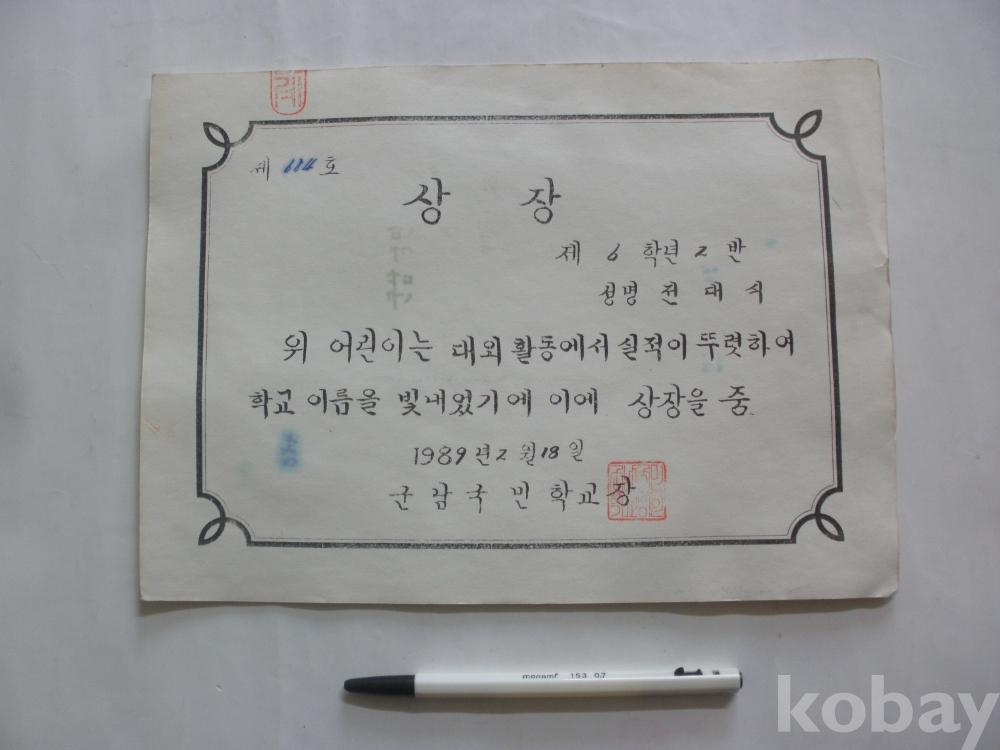 제 114 호
상 장
제 6 학년 2 반
성명 전 대 식
위 어린이는 대외 활동에서 실적이 뚜렷하여
학교 이름을 빛내었기에 이에 상장을 줌
1989 년 2 월 18 일
군남국민학교장
monami 153 0.7
kobay